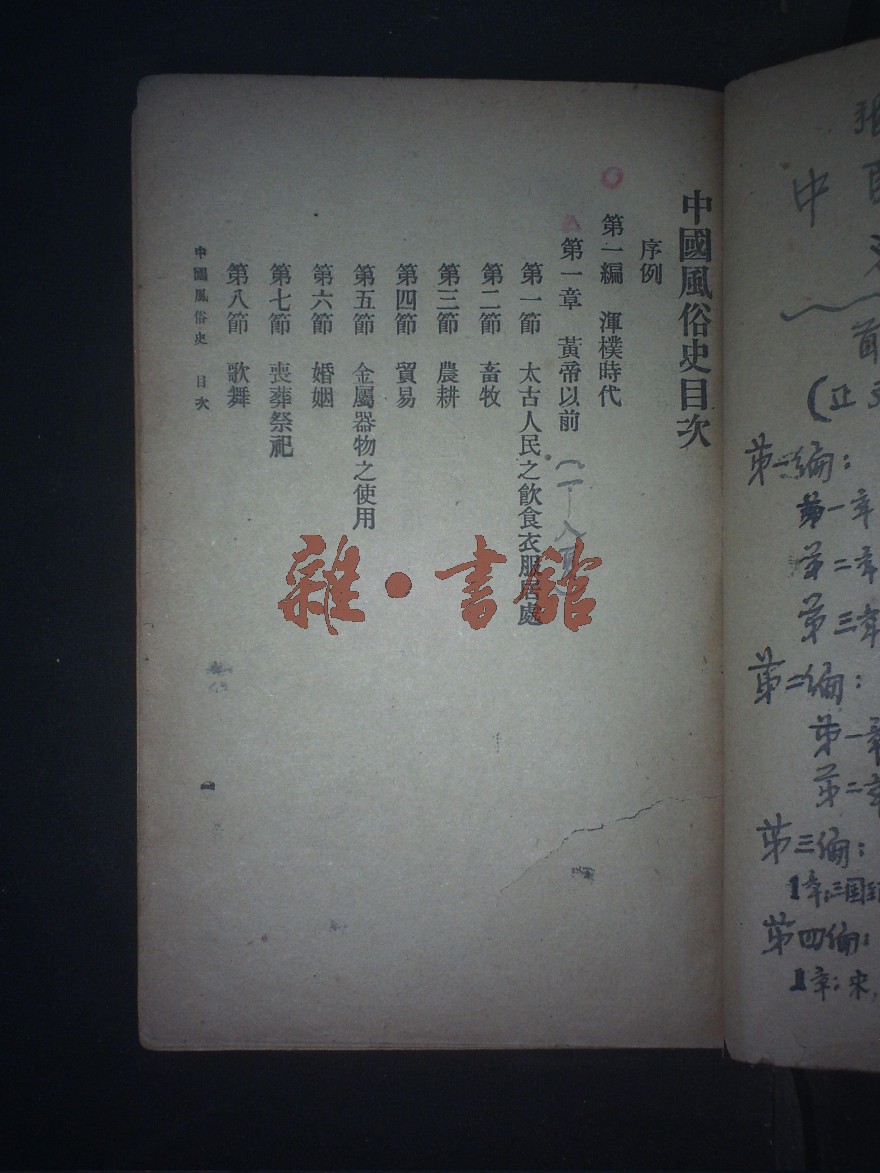 中國風俗史目次
序例
第一編　渾樸時代
第一章　黃帝以前
第一節　太古人民之飲食衣服居處
第二節　畜牧
第三節　農耕
第四節　貿易
第五節　金屬器物之使用
第六節　婚姻
第七節　喪葬祭祀
第八節　歌舞
中國風俗史　目次
一
雜·書館
中
第一编：
第一章
第二章
第三章
第二编：
第一章
第二章
第三编：
1章：三国
第四编：
1章：宋，